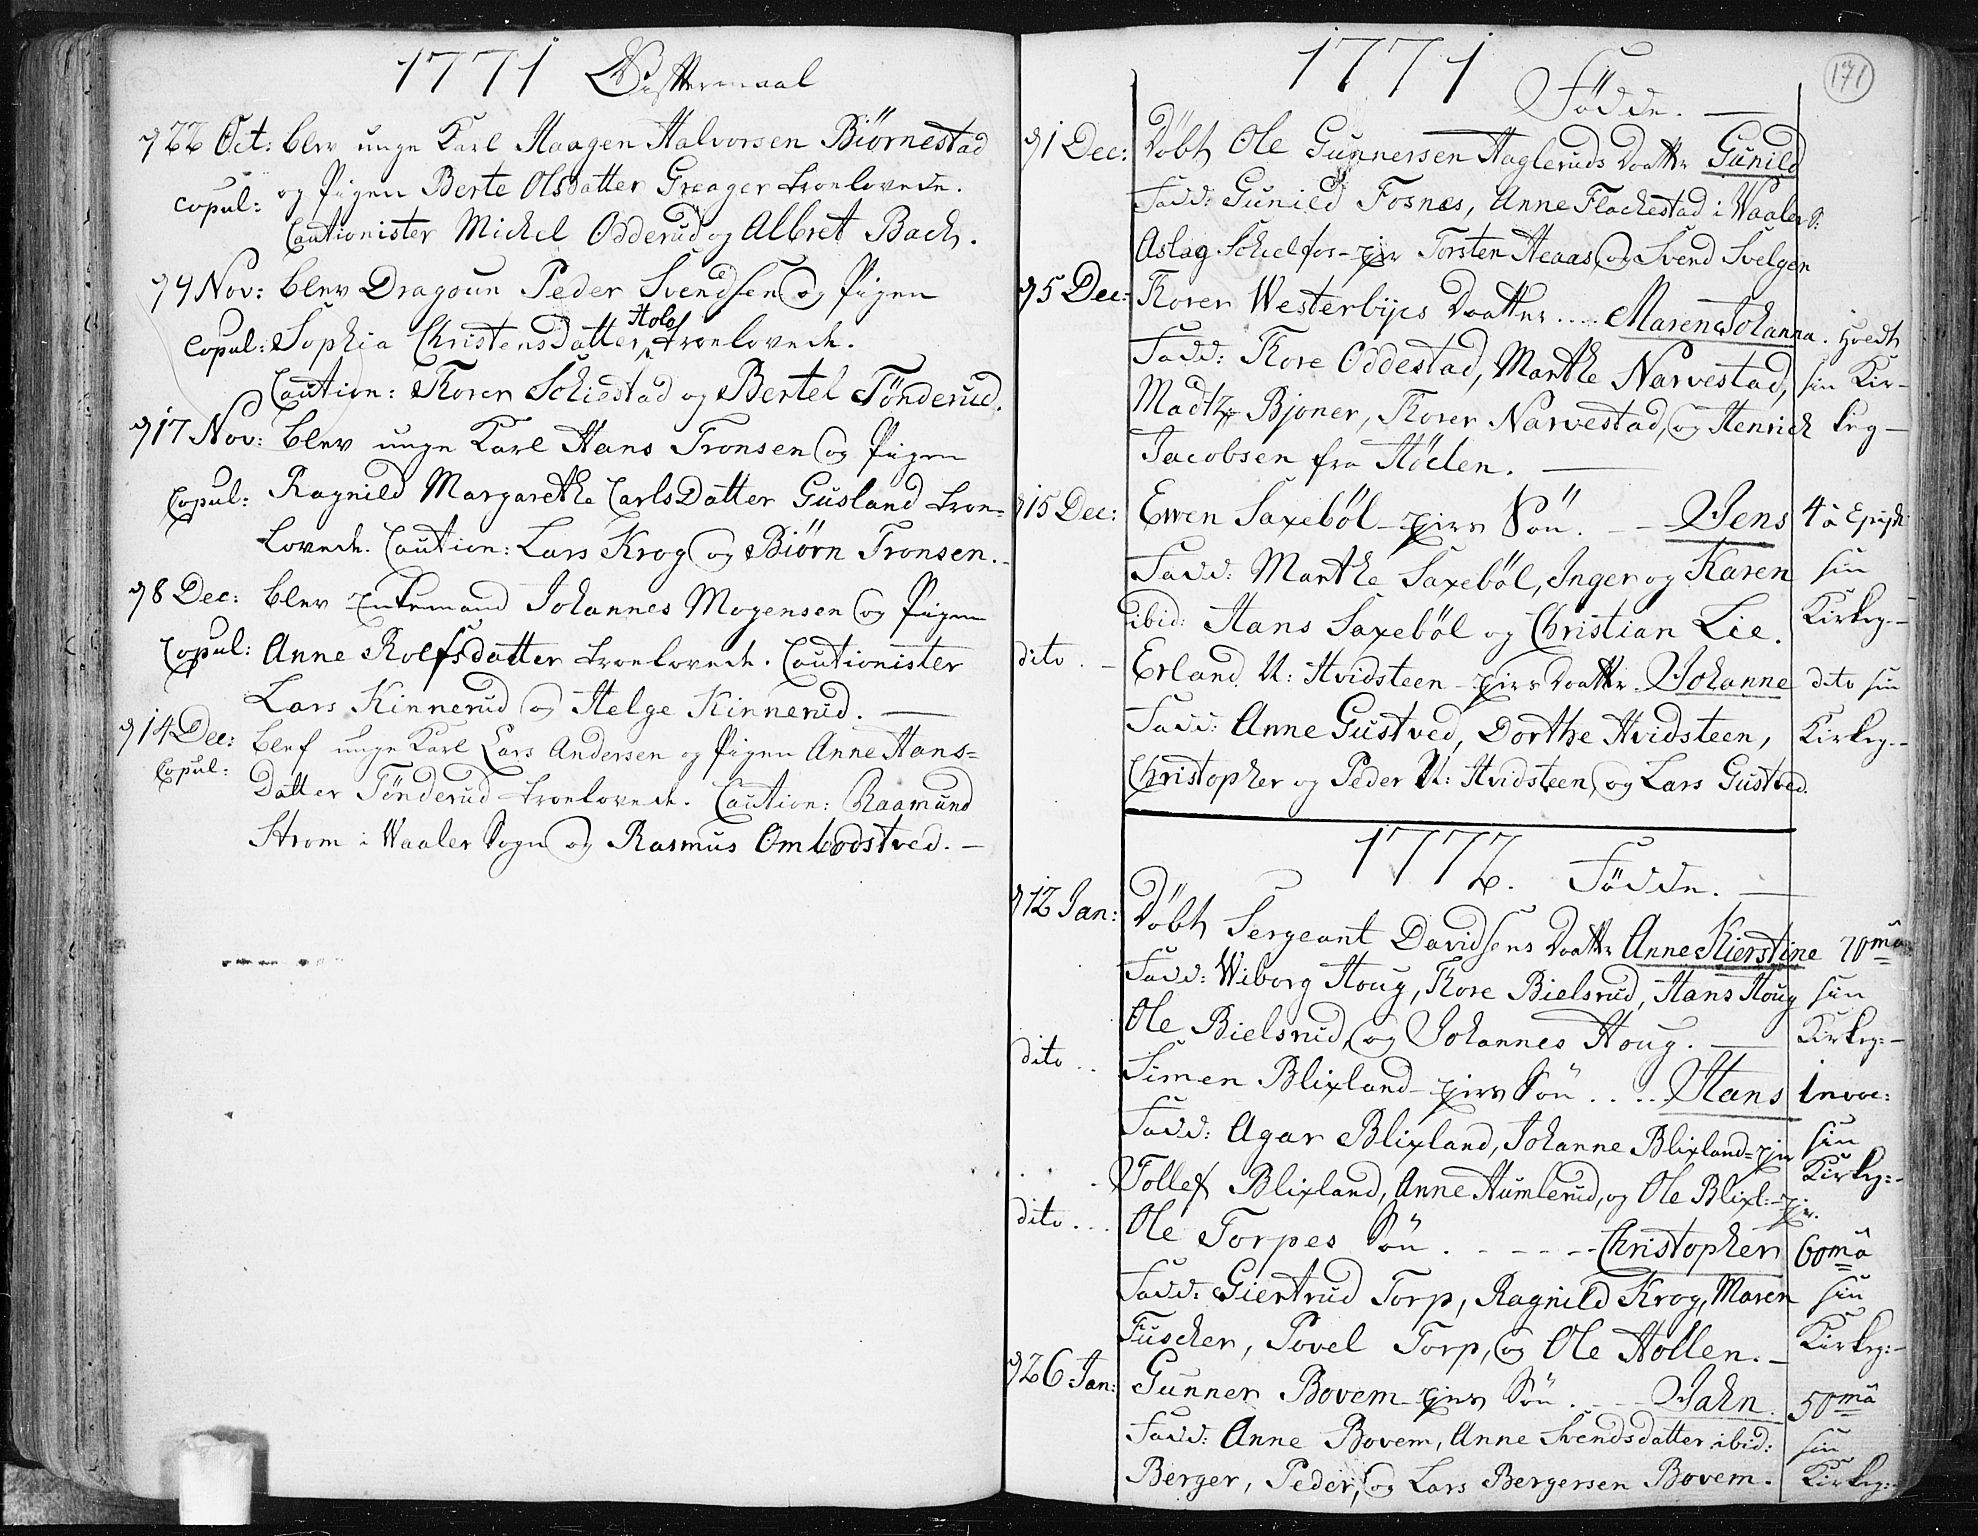 1771 Egtemaal
d 22 Oct: blev unge Karl Haagen Halvorsen Biörnestad
copul: og Pigen Berte Olsdatter Greager troelovede.
Cautionister Michel Odderud og Albret Bach.
d 9 Nov: blev Dragoun Peder Svendsen og Pigen
Holo
Copul: Sophia Christensdatter troelovede.
Caution: Thorer Schiestad og Bertel Tönderud.
d 17 Nov: blev unge Karl Hans Tronsen og Pigen
Copul: Ragnild Margarethe CarlsDatter Gusland troe=
lovede. Caution: Lars Krog og Biörn Tronsen.
d 8 Dec: blev Enkemand Johannes Mogensen og Pigen
Copul: Anne Rolfsdatter troelovede. Cautionister
Lars Kinnerud og Helge Kinnerud.
d 14 Dec: blef unge Karl Lars Andersen og Pigen Anne Hans=
Copul: Datter Tönderud troelovede. Caution: Raamund
Strom i Waaler Sogn og Rasmus Ombodstved.
171
1771
Födde.
d 1 Dec: Döbt Ole Gunnersen Hagleruds Daatter Gunild
Fadd: Gunild Fosnes, Anne Flachestad i Waaler S:
Aslag Schielfos-eier Torsten Heaas, og Svend Svelgen
d 5 Dec: Thorer Westerbyes Daatter .... Maren Johanna. holdt
Fadd: Thore Oddestad, Marthe Narvestad, sin Kir-
Madtz Bjoner, Thorer Narvestad, og Henrich keg-
Jacobsen fra Hölen.
d 15 Dec: Even Saxeböl-eiers Sön. Jens 4 a Epiph:
Fadd: Marthe Saxeböl, Inger og Karen sin
ibid: Hans Saxeböl og Christian Lie. Kirkeg.-
dito. Erland U: Hvidsteen-eiers Daatter Johanne dito sin
Fadd: Anne Gustved, Dorthe Hvidsteen, Kirkeg.-
Christopher og Peder U: Hvidsteen, og Lars Gustved.
1772. Födde.
d 12 Jan: Döbt Sergeant Davidsens Daatter Anne Kierstine 70mâ
Fadd: Wiborg Houg, Thore Bielsrud, Hans Houg sin
Ole Bielsrud, og Johannes Houg. Kirkeg:-
dito .. Simen Blixland-eiers Sön .... Hans Invoc:
Fadd: Agar Blixland, Johanne Blixland-eier sin
Tollef Blixland, Anne Humlerud, og Ole Blixl:-eier. Kirkeg:-
dito ... Ole Torpes Sön. Christopher 60mâ
Fadd: Giertrud Torp, Ragnild Krog, Maren sin
Fuscher, Povel Torp, og Ole Hollen. Kirkeg:-
d 26 Jan: Gunner Bovem-eiers Sön. Jahn. 50mâ
Fadd: Anne Bovem, Anne Svendsdatter ibid: sin
Berger, Peder, og Lars Bergersen Bovem. Kirkeg:-